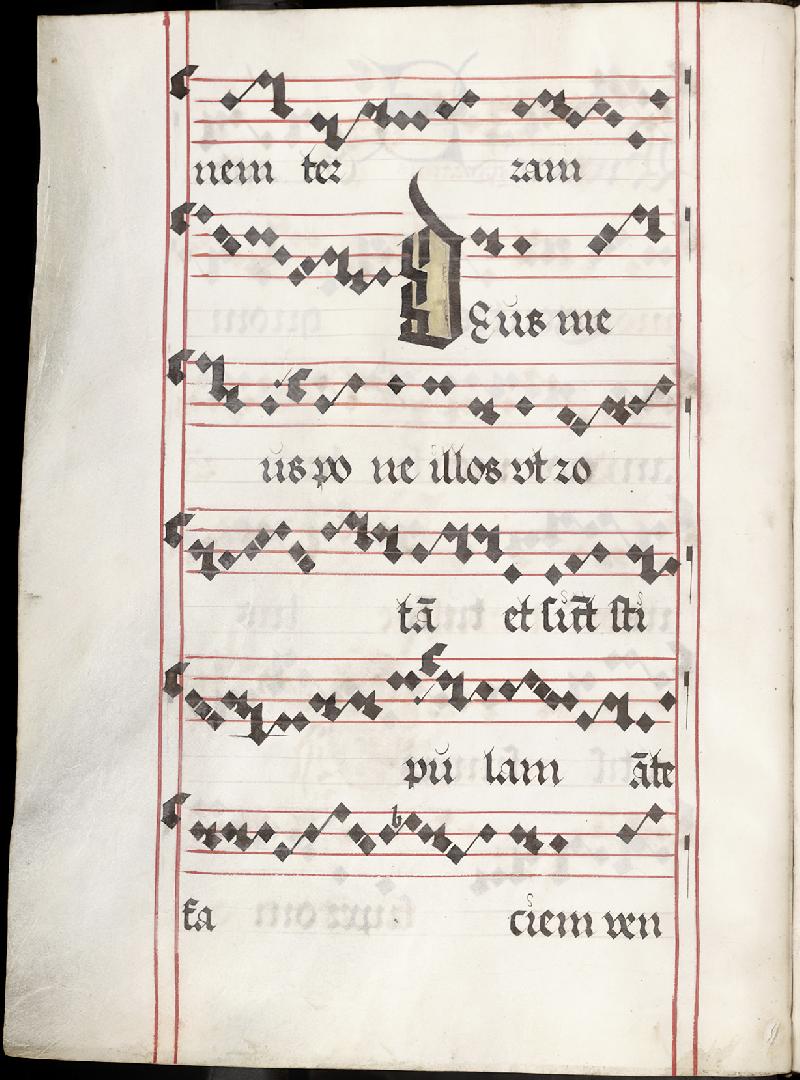 nem ter ram
Deus me
us po ne illos vt ro
tā et sic̄t sti
pu lam āte
fa ciem ven